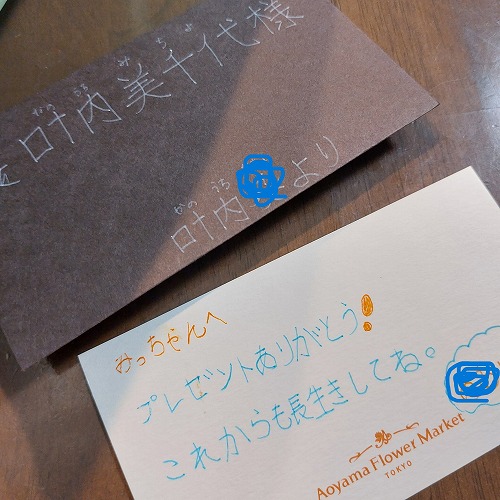 かのうち みちよ
叶内美千代様
かのうち
叶内 より
みっちゃんへ
プレゼントありがとう!
これからも長生きしてね。
Aoyama Flower Market
TOKYO